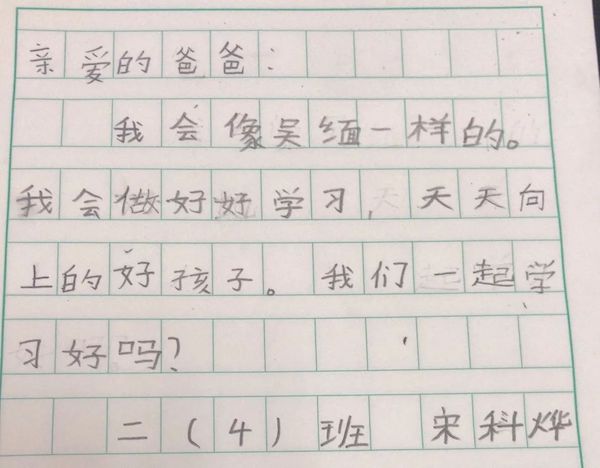 亲爱的爸爸:
我会像吴缅一样的。
我会做好好学习,天天向
上的好孩子。我们一起学
习好吗?
二(4)班 宋科烨